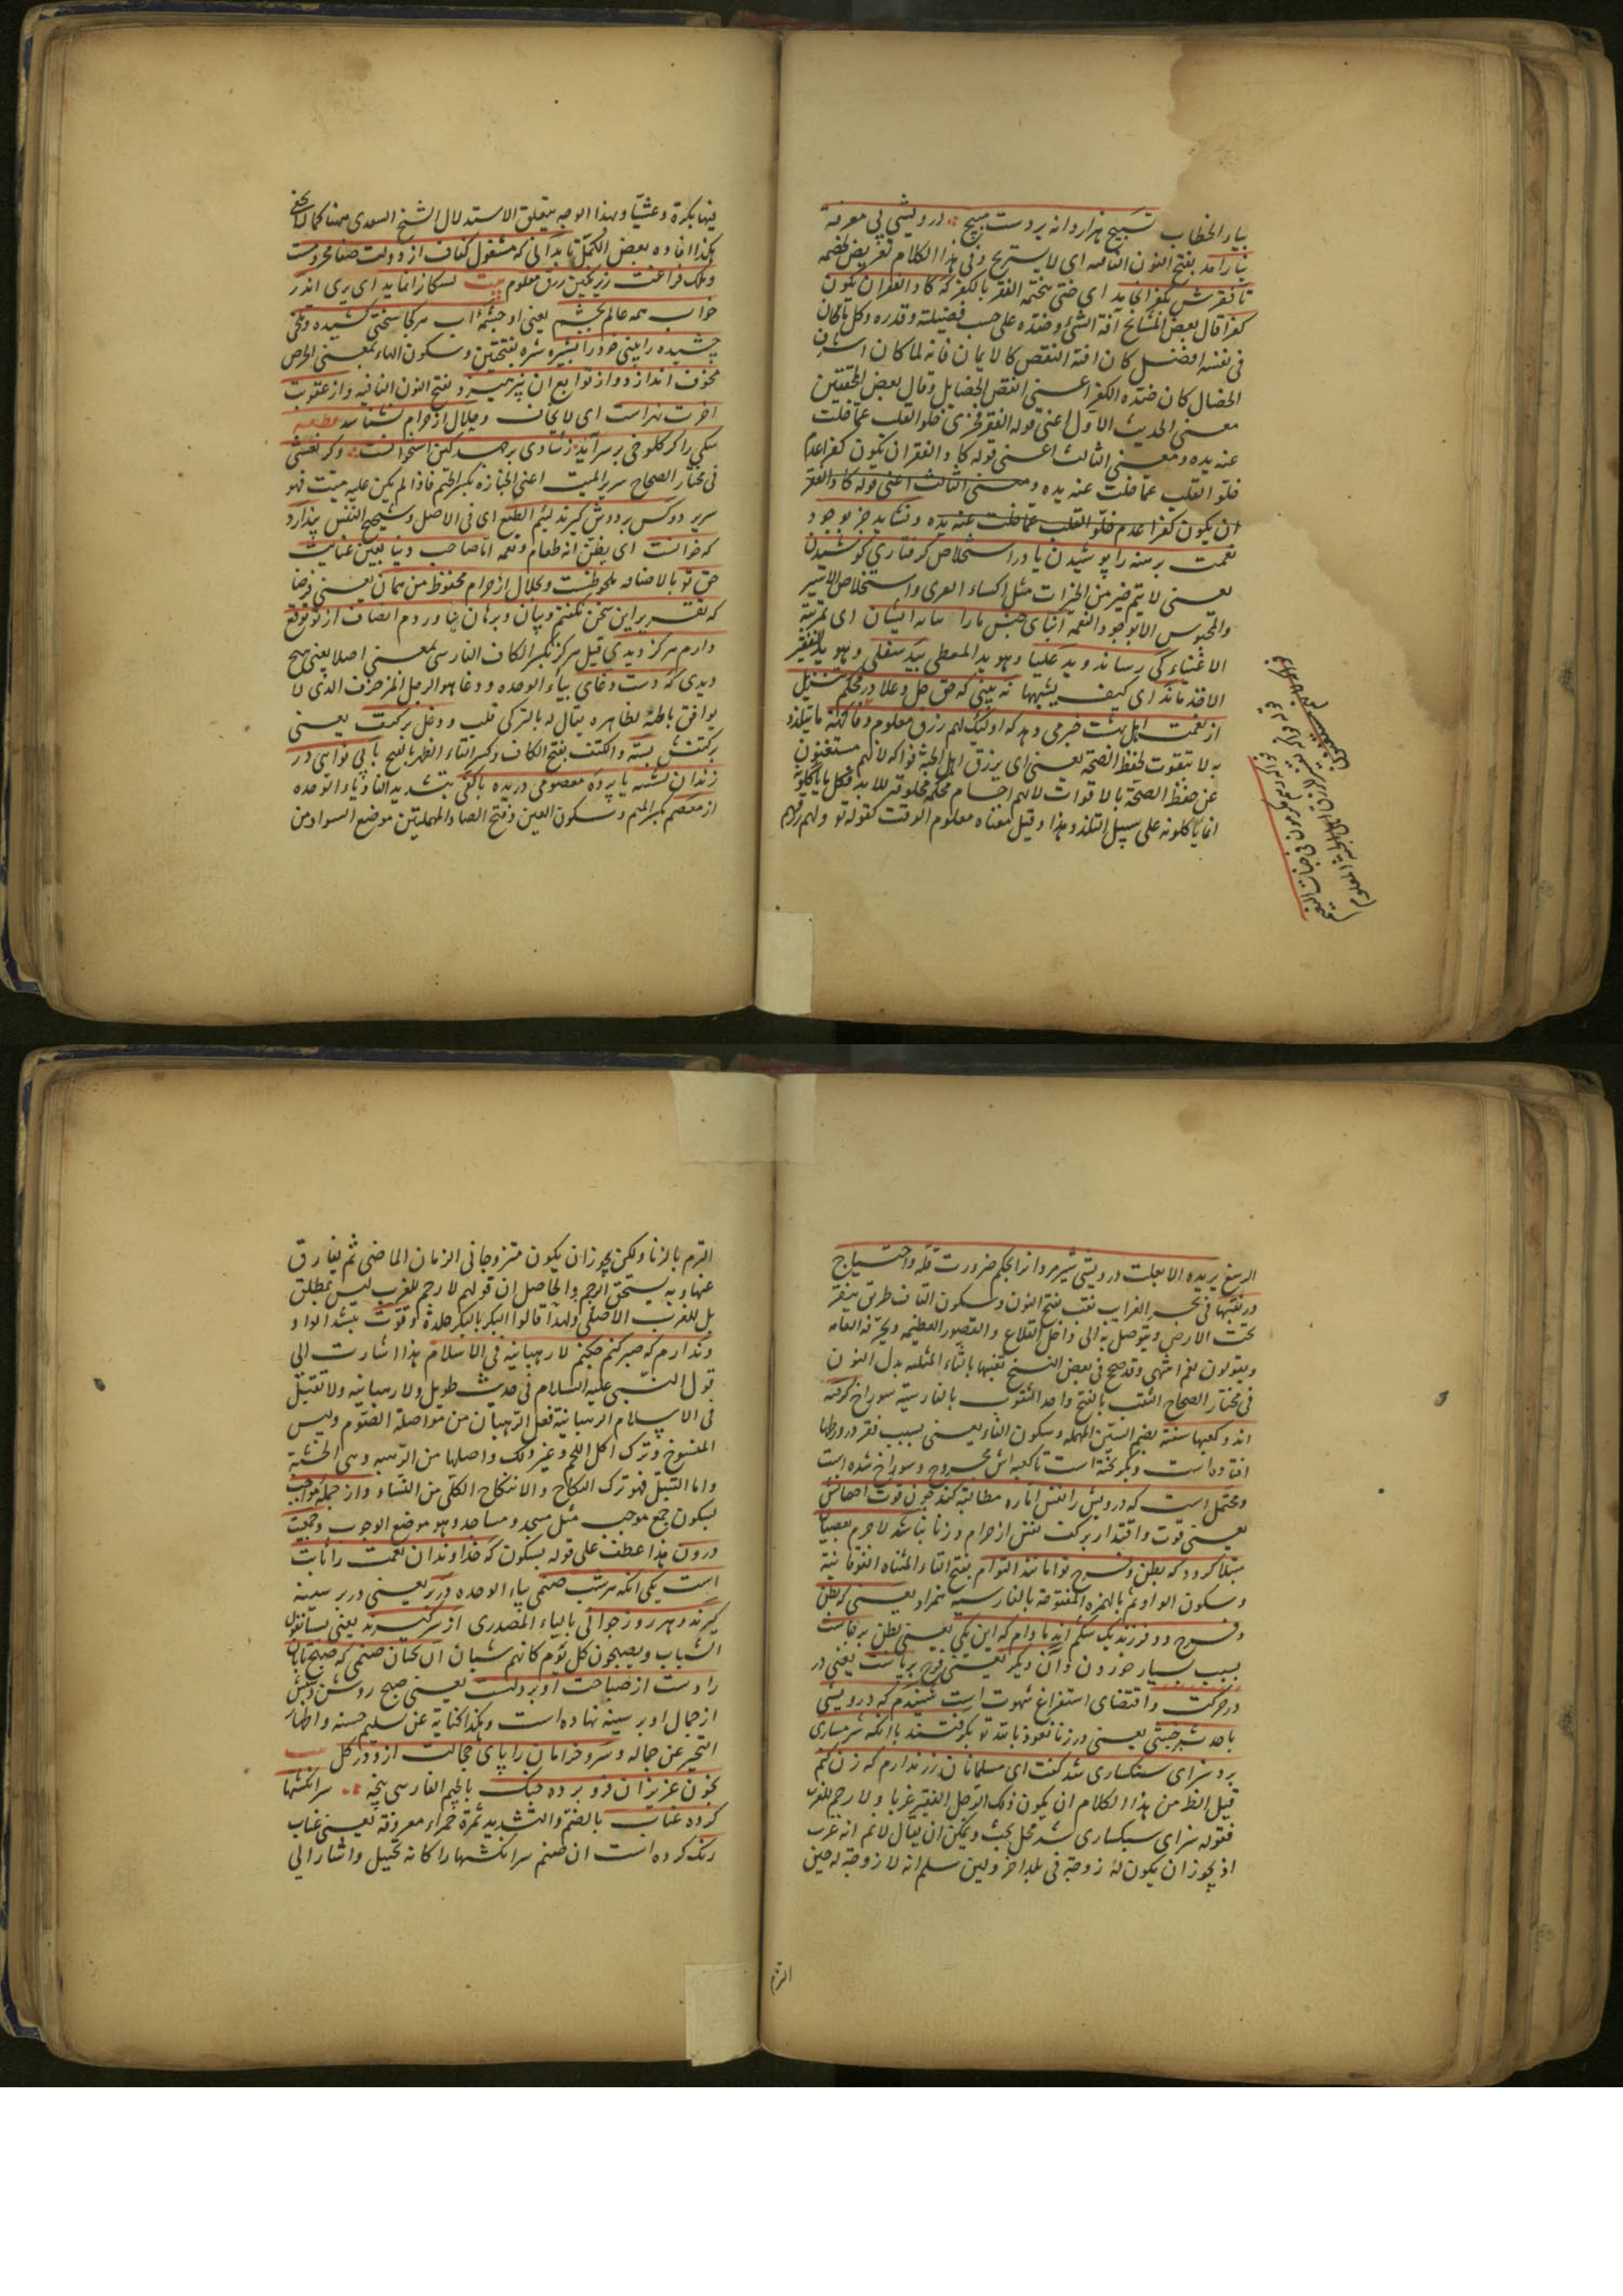 بیاء الخطاب تسبیح هزار دانه بر دست مپیچ درویشی بی معرفت
نیارامد بفتح النون الثانیه ای لا یستریح وفی هذا الکلام تعریض لخصمه
تا فقرش بکفر انجامد ای حتی یختم الفقر بالکفر که کاد الفقر ان یکون
کفرا قال بعض المشایخ آفة الشئ وضده علی حسب فضیلته وقدره وکل ما کان
فی نفسه افضل کان آفته انقص کالایمان فانه لما کان اشرف
الخصال کان ضده الکفر اعنی انقص الخصایل وقال بعض المحققین
معنی الحدیث الاول اعنی قوله الفقر فخری خلو القلب عما خلت
عنه یده ومعنی الثالث اعنی قوله کاد الفقر ان یکون کفرا عدم
خلو القلب عما خلت عنه یده ومعنی الثالث اعنی قوله کاد الفقر
ان یکون کفرا عدم خلو القلب عما خلت عنه یده ونشاید جز بوجود
نعمت برهنه را پوشیدن یا در استخلاص گرفتاری کوشیدن
یعنی لا یتم خیر من الخیرات مثل اکساء العری واستخلاص الاسیر
والمحبوس الا بوجود النعمه ابنای جنس ما را بمرتبه ایشان ای بمرتبة
الاغنیاء کی رساند وید علیا وهو ید المعطی بید سفلی وهو ید الفقیر
الاخذ ماند ای کیف یشبهها نه بینی که حق جل وعلا در محکم تنزیل
از نعمت اهل بهشت خبر می دهد که اولئک لهم رزق معلوم وفاکهة ما یتلذذ
به لا بتقوت لحفظ الصحه یعنی ای یرزق اهل الجنة فواکه لانهم مستغنون
عن حفظ الصحة بالاقوات لانهم اجسام محکمة مخلوقة للابد فکل ما یاکلونه
انما یاکلونه علی سبیل التلذذ وهذا وقیل معناه معلوم الوقت کقوله تع ولهم رزقهم
فیها بکرة وعشیا وبهذا الوجه یتعلق الاستدلال الشیخ السعدی ههنا کما لا یخفی
هکذا افاده بعض الکمل تا بدانی که مشغول کفاف از دولت عفاف محرومست
وملک فراغت زیر نگین رزق معلوم بیت تشنگانرا نماید ای یری اندر
خواب همه عالم بچشم یعنی او چشمهٔ آب هر کجا سختی کشیده وتلخی
چشیده را بینی خود را بشره شره بفتحتین وسکون الهاء بمعنی الحرص
مخوف اندازد واز توابع ان نپرهیزد بفتح النون الثانیه واز عقوبت
آخرت نهراسد ای لا یخاف وحلال از حرام نشناسد قطعه
سگی را گر کلوخی بر سر آید ز شادی بر جهد کین استخوانست وگر نعشی
فی مختار الصحاح سریر المیت اعنی الجنازه بکسر الجیم فاذا لم یکن علیه میت فهو
سریر دو کس بر دوش گیرند لئیم الطبع ای فی الاصل وشحیح النفس پندارد
که خوانست ای یظن انه طعام ونعمه اما صاحب دنیا بعین عنایت
حق تع بالاضافه ملحوظست وبحلال از حرام محفوظ من همان یعنی فرضا
که تقریر این سخن نکنم وبیان وبرهان نیاوردم انصاف از تو توقع
دارم هرگز دیدی قیل هرگز بکسر الکاف الفارسی بمعنی اصلا یعنی هیچ
دیدی که دست دغای بیاء الوحده ودغا هو الرجل المزخرف الذی لا
یوافق باطنه بظاهره یقال له بالترکی قلب ودغل بر کتف یعنی
بر کتفش بسته والکتف بفتح الکاف وکسر التاء الظهر بالعربیه یا بی نوایی در
زندان نشسته یا پرده معصومی دریده یا کفی بتشدید الفاء ویاء الوحده
از معصم بکسر المیم وسکون العین وفتح الصاد المهملتین موضع السوار من
الرسغ بریده الا بعلت درویشی شیر مردانرا بحکم ضرورت قله واحتیاج
در نقبها فی بحر الغرایب نقب بفتح النون وسکون القاف طریق ینقر
تحت الارض ویتوصل به الی داخل القلاع والقصور العظیمه ویحرفه العامه
ویقولون لغم انتهی وقد صح فی بعض النسخ ثقبها بالثاء المثلثه بدل النون
فی مختار الصحاح الثقب بالفتح واحد الثقوب بالفارسیة سوراخ گرفته
اند وکعبها سفته بضم السین المهمله وسکون الفاء یعنی بسبب فقر در ورطها
افتاده است وبگریخته است تا کعبه اش مجروح وسوراخ شده است
ومحتمل است که درویش را نفس اماره مطالبه کند چون قوت احصانش
یعنی قوت واقتدار بر کف نفس از حرام وزنا نباشد لا جرم بعصیان
مبتلا گردد که بطن وفرج توامانند التوام بفتح التاء المثناه الفوقانیة
وسکون الواو ثم بالهمزه المفتوحه بالفارسیة همزاد یعنی که بطن
وفرج دو فرزند یک شکم اند مادام که این یکی یعنی بطن بر جاست
بسبب بسیار خوردن وآن دیگر یعنی فرج بر پاست یعنی در
در حرکت واقتضای استفراغ شهوت است شنیدم که درویشی
با حدث بر خبثی یعنی در زنا نعوذ بالله تع بگرفتند با آنکه شرمساری
برد سزای سنگساری شد گفت ای مسلمانان زر ندارم که زن کنم
قیل الظ من هذا الکلام ان یکون ذلک الرجل الفقیر غربا ولا رجم للغرب
فقوله سزای سنگساری شد محل بحث ویمکن ان یقال لا نم انه غرب
اذ یجوز ان یکون له زوجة فی بلد اخر ولئن سلم انه لا زوجة له حین
التزم
التزم بالزنا ولکن یجوز ان یکون متزوجا فی الزمان الماضی ثم یفارق
عنها وبه یستحق الرجم والحاصل ان قولهم لا رجم للغرب لیس بمطلق
بل للغرب الاصلی ولهذا قالوا البکر بالبکر جلدة وقوت بتشدید الواو
وندارم که صبر کنم حکم لا رهبانیه فی الاسلام هذا اشارت الی
قول النبی علیه السلام فی حدیث طویل ولا رهبانیه ولا تقبل
فی الاسلام الرهبانیة فعل الرهبان من مواصلة الصوم ولبس
المسوح وترک اکل اللحم وغیر ذلک واصلها من الرهبة وهی الخشیة
واما التبتل فهو ترک النکاح والانتکاح الکلی من النساء واز جمله مواجب
سکون جمع موجب مثل مسجد ومساجد وهو موضع الوجوب وجمعیت
درون هذا عطف علی قوله سکون که خداوندان نعمت را ثابت
است یکی آنکه هر شب صنمی بیاء الوحده در بر یعنی در بر سینه
گیرند وهر روز جوانی بالیاء المصدری از سر گیرند یعنی یستانفون
الشباب ویصبحون کل یوم کانهم شبان آن چنان صنمی که صبح تابان
را دست از صباحت او بر دلست یعنی صبح روشن دستش
از جمال او بر سینه نهاده است وهکذا کنایة عن تسلیم حسنه واظهار
التحیر عن جماله وسرو خرامان را پای خجالت از او در گل بیت
بخون عزیزان فرو برده چنگ بالجیم الفارسی پنجه سرانگشتها
کرده عناب بالضم والتشدید ثمرة حمراء معروفة یعنی عناب
رنگ کرده است ان صنم سرانگشتها را کانه تخییل واشار الی